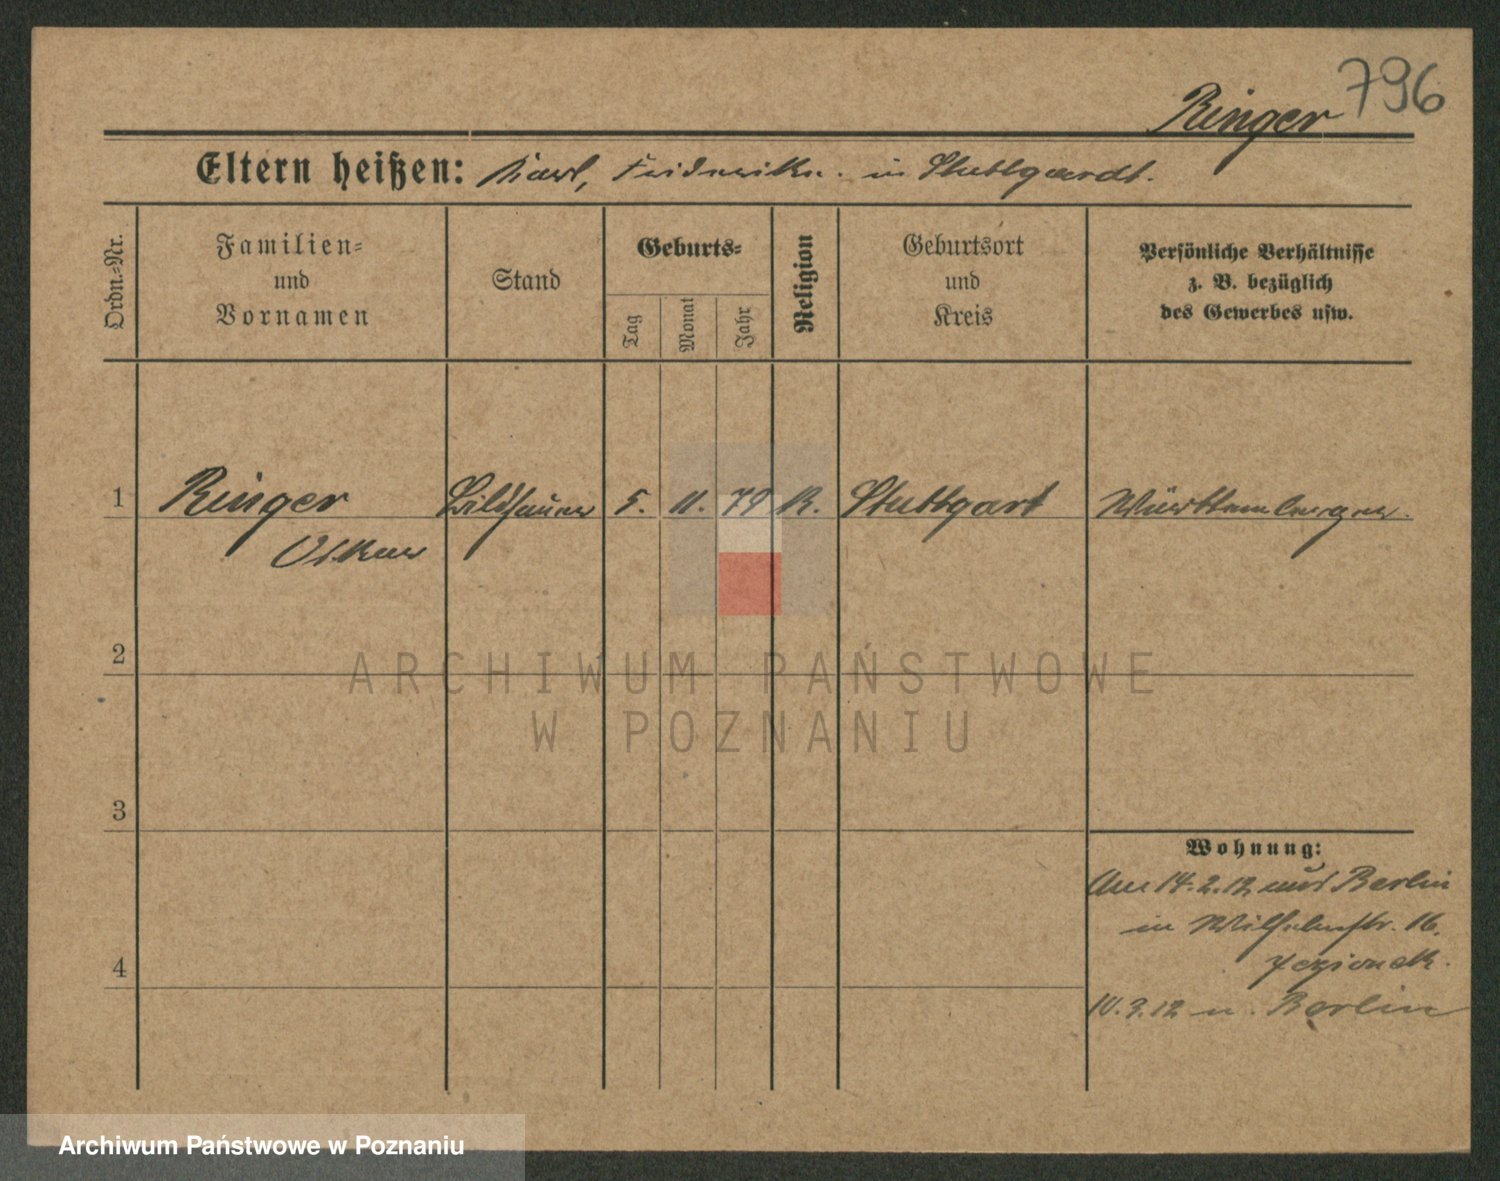 796
Ringer
Eltern heißen: Karl, Friderike. in Stuttgardt.
Ordn.=Nr.
Familien=
und
Vornamen
Stand
Geburts=
Tag
Monat
Jahr
Religion
Geburtsort
und
Kreis
Persönliche Verhältnisse
z. B. bezüglich
des Gewerbes usw.
1 Ringer Bildhauer 5. 11. 79 K. Stuttgart Württemberger.
Oskar
2
3
4
Wohnung:
Am 14.2.12 aus Berlin
in Wilhelmstr. 16.
10.3.12 n. Berlin
ARCHIWUM PAŃSTWOWE
W POZNANIU
Archiwum Państwowe w Poznaniu